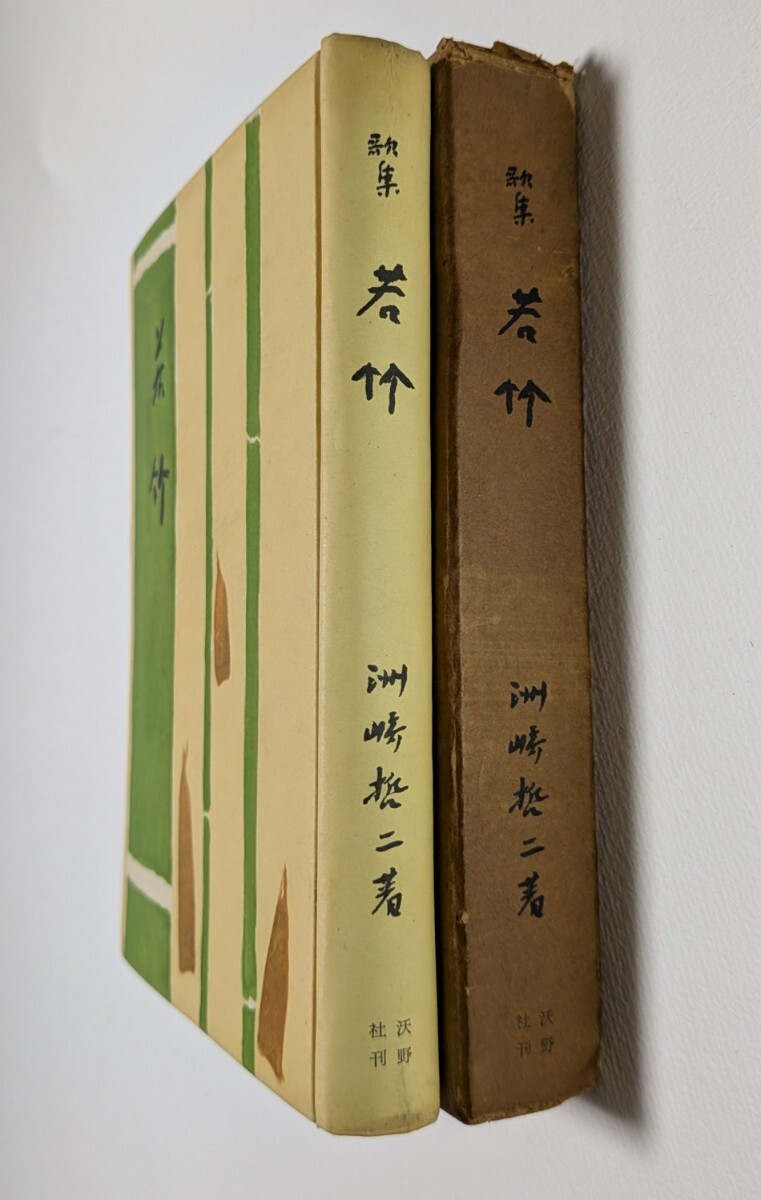 若竹
歌集
若竹
洲崎哲二著
沃野
社刊
歌集
若竹
洲崎哲二著
沃野
社刊